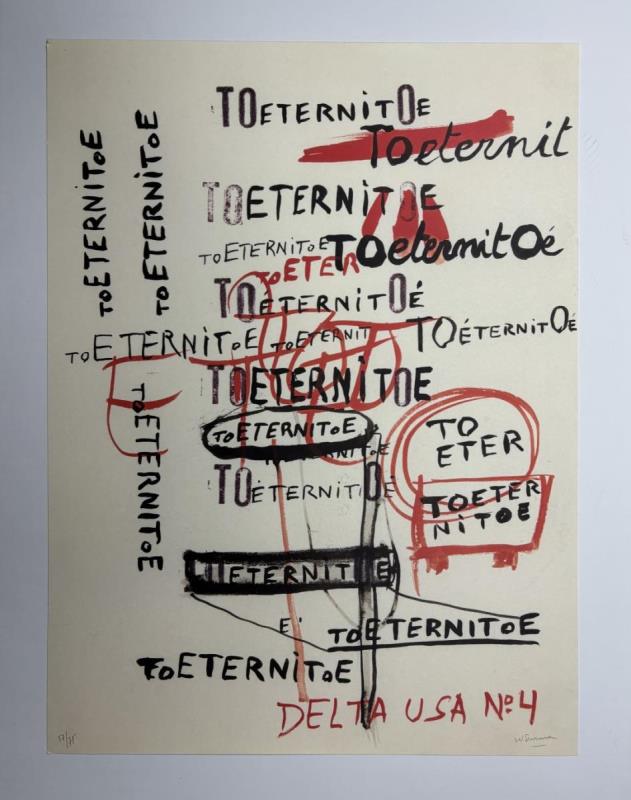 TOETERNITOE
TOeternit
TOETERNITOE
TOETERNITOE
TOETERNITOE
TOETERNITOE
TOeternitOé
TOETER
TOéTERNITOé
TOéTERNITOé
TOETERNITOE
TOETERNIT
TOETERNITOE
TOETERNITOE
TOETERNITOE
TO
ETER
TOETERNITOE
TOETER
NITOE
ETERNIT E
E'
TOETERNITOE
TOETERNITOE
DELTA USA No4